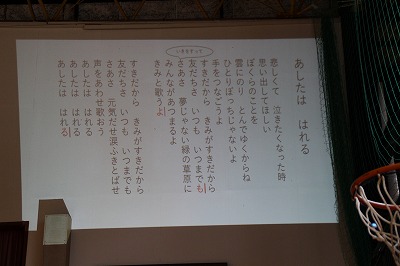 あしたは　はれる
悲しくて　泣きたくなった時
思い出してほしい
ぼくらのことを
雲にのり　とんでゆくからね
ひとりぼっちじゃないよ
手をつなごうよ
すきだから　きみがすきだから
友だちさ　いつも　いつまでも
さあさ　夢じゃない緑の草原に
みんながあつまるよ
きみと歌うよ
すきだから　きみがすきだから
友だちさ　いつも　いつまでも
さあさ　元気だせ涙ふきとばせ
声をあわせ歌おう
あしたは　はれる
あしたは　はれる
あしたは　はれる